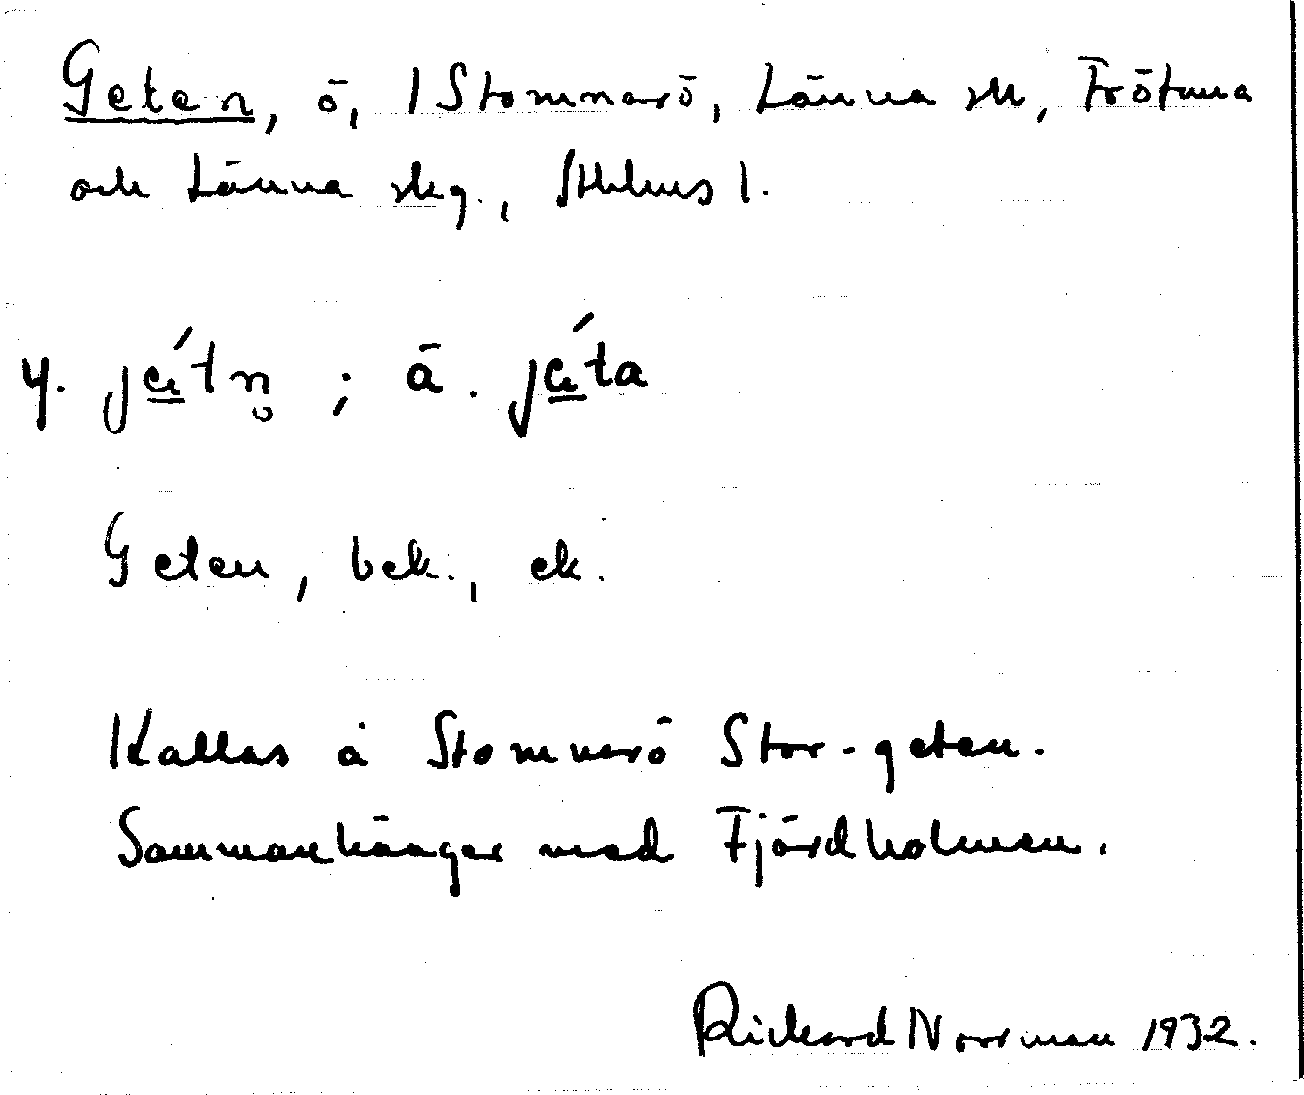 Geten, ö, 1 Stommarö, Länna sk, Frötuna
och Länna skg., Sthlms l.
y. jétn̥; ä. jéta
Geten, bek., ek.
Kallas å Stommarö Stor-geten.
Sammanhänger med Fjärdholmen.
Rickard Norrman 1932.